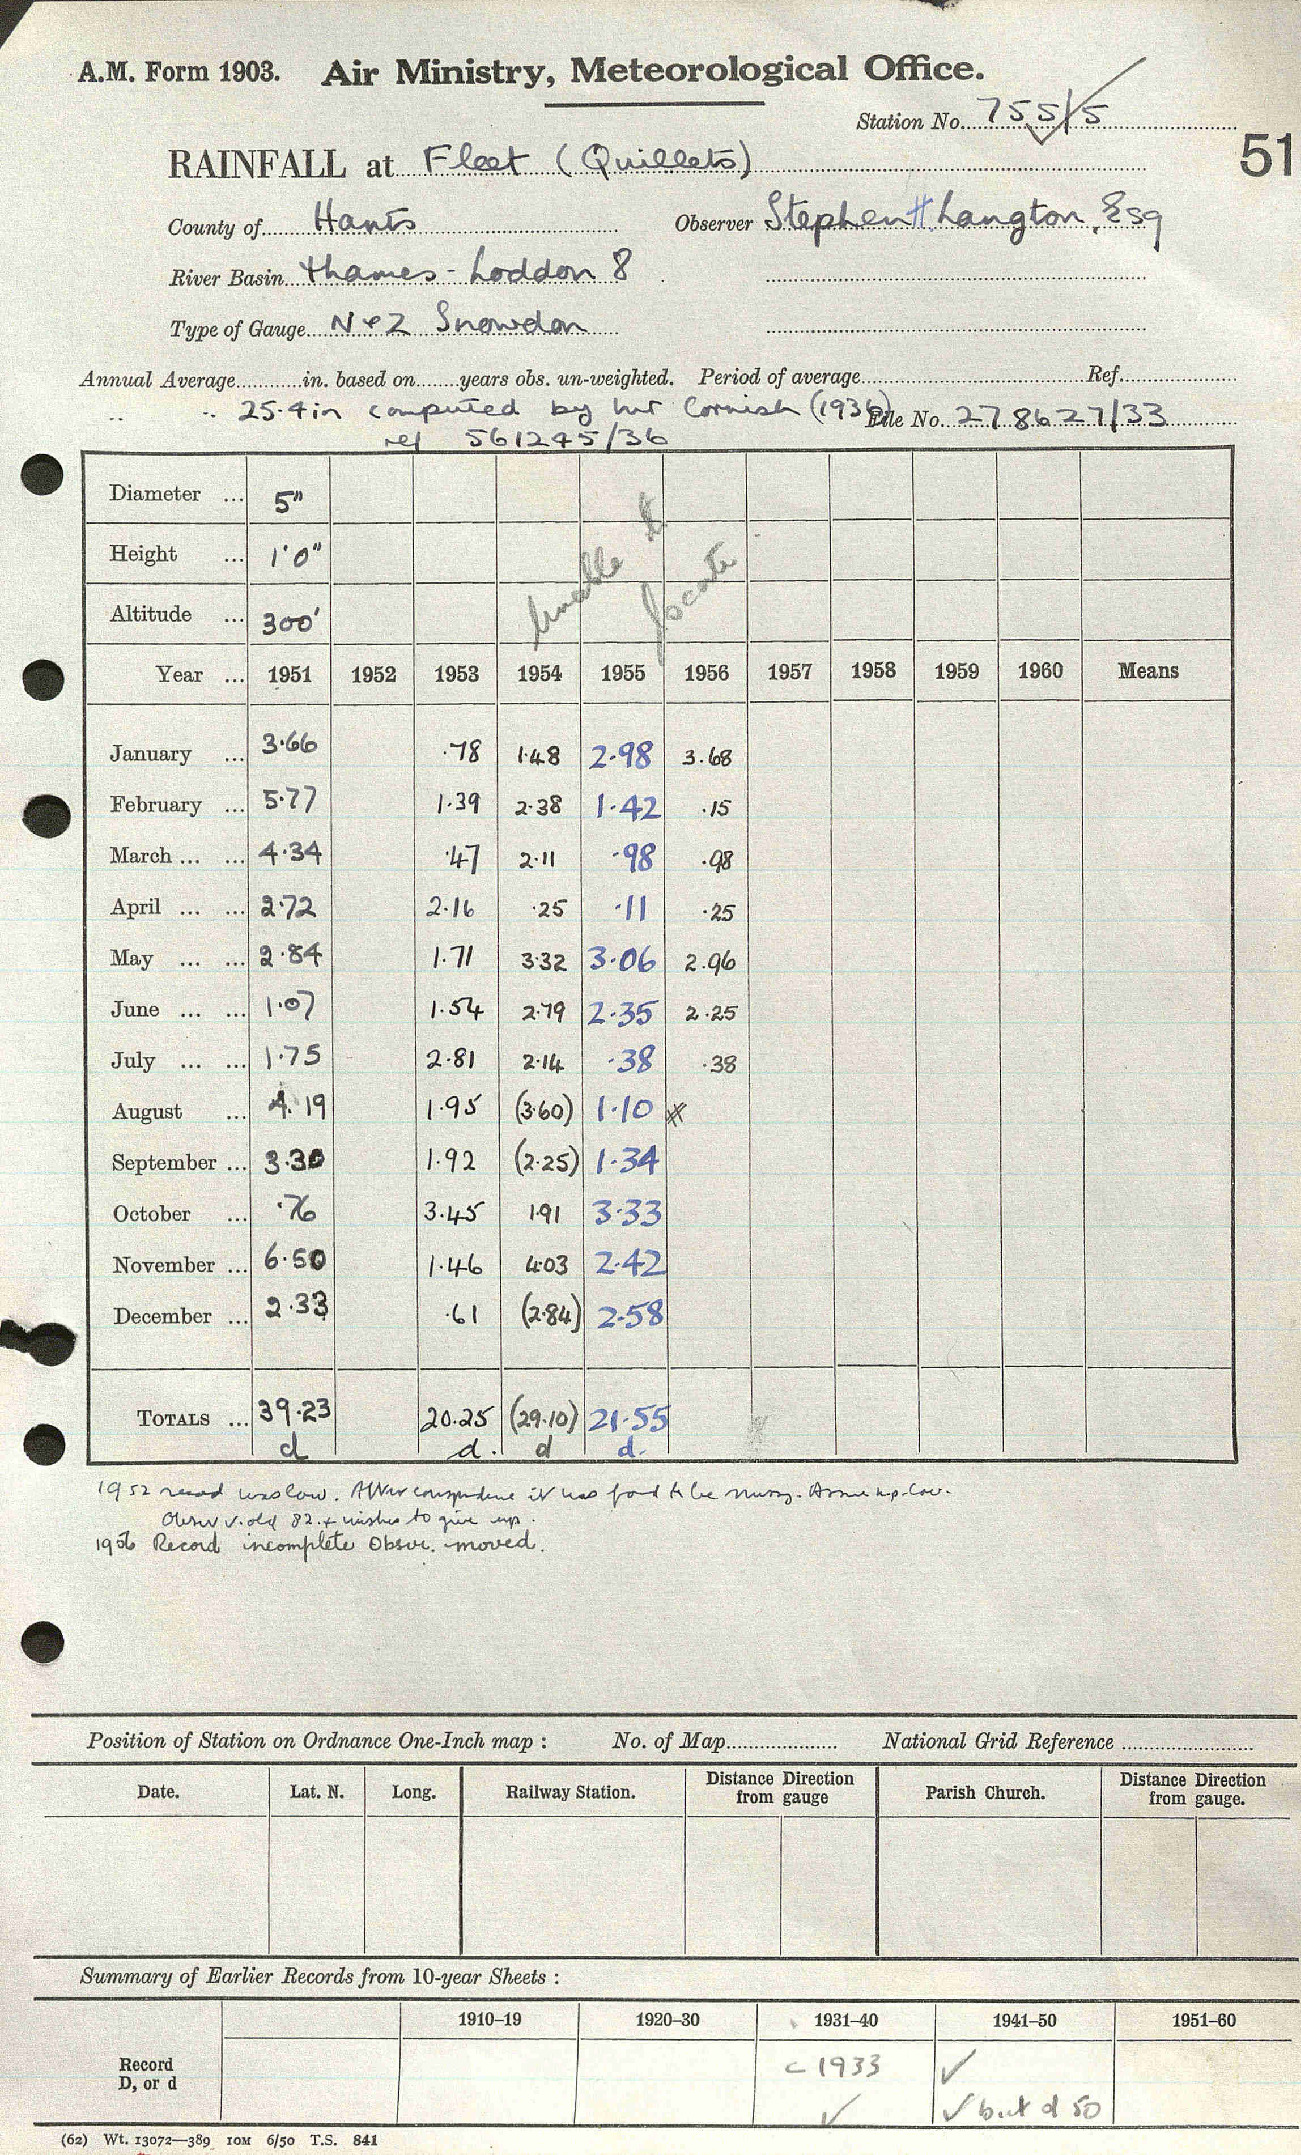 A.M. Form 1903. Air Ministry, Meteorological Office.
Station No. 755/5
51
RAINFALL at Fleet (Quillets)
County of Hants Observer Stephen H. Langton, Esq
River Basin Thames - Loddon 8
Type of Gauge N & Z Snowdon
Annual Average in. based on years obs. un-weighted. Period of average Ref.
" " 25.4 in computed by Mr Cornish (1936) File No. 278627/33
ref 561245/36
Diameter ... 5"
Height ... 1'0"
Altitude ... 300'
Unable to locate
Year ... 1951 1952 1953 1954 1955 1956 1957 1958 1959 1960 Means
January ... 3.66 .78 1.48 2.98 3.68
February ... 5.77 1.39 2.38 1.42 .15
March ... ... 4.34 .47 2.11 .98 .98
April ... ... 2.72 2.16 .25 .11 .25
May ... ... 2.84 1.71 3.32 3.06 2.96
June ... ... 1.07 1.54 2.79 2.35 2.25
July ... ... 1.75 2.81 2.14 .38 .38
August ... 4.19 1.95 (3.60) 1.10
September ... 3.30 1.92 (2.25) 1.34
October ... .76 3.45 1.91 3.33
November ... 6.50 1.46 4.03 2.42
December ... 2.33 .61 (2.84) 2.58
TOTALS ... 39.23 20.25 (29.10) 21.55
d d. d d.
1952 record was low. After it was found to be
Observ v. old 82 & wishes to give up.
1956 Record incomplete Obser. moved.
Position of Station on Ordnance One-Inch map : No. of Map National Grid Reference
Date. Lat. N. Long. Railway Station. Distance from gauge Direction Parish Church. Distance from gauge. Direction
Summary of Earlier Records from 10-year Sheets :
1910–19 1920–30 1931–40 1941–50 1951–60
Record D, or d c 1933 ✓
✓ ✓ but d 50
(62) Wt. 13072—389 10M 6/50 T.S. 841